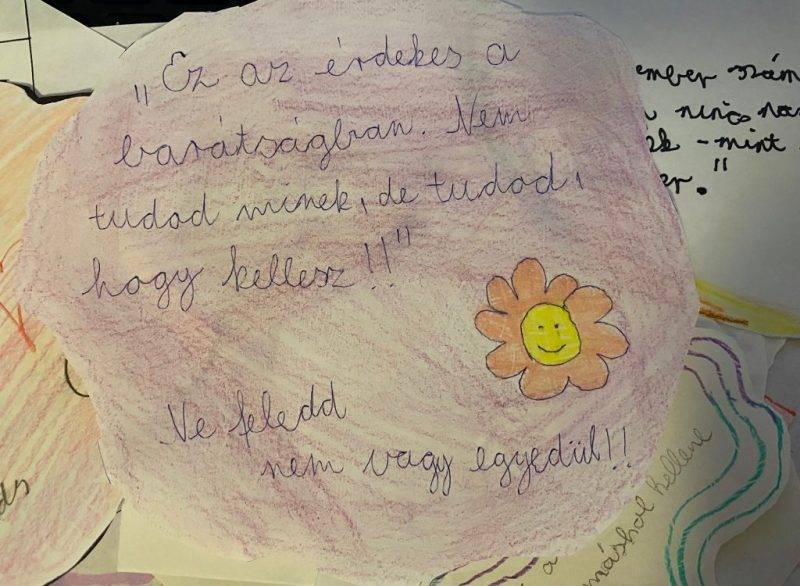 „Ez az érdekes a
barátságban. Nem
tudod minek, de tudod,
hogy kellesz!!"
Ne feledd
nem vagy egyedül!!
ember szám
nincs
- mint
máshol kellene
a